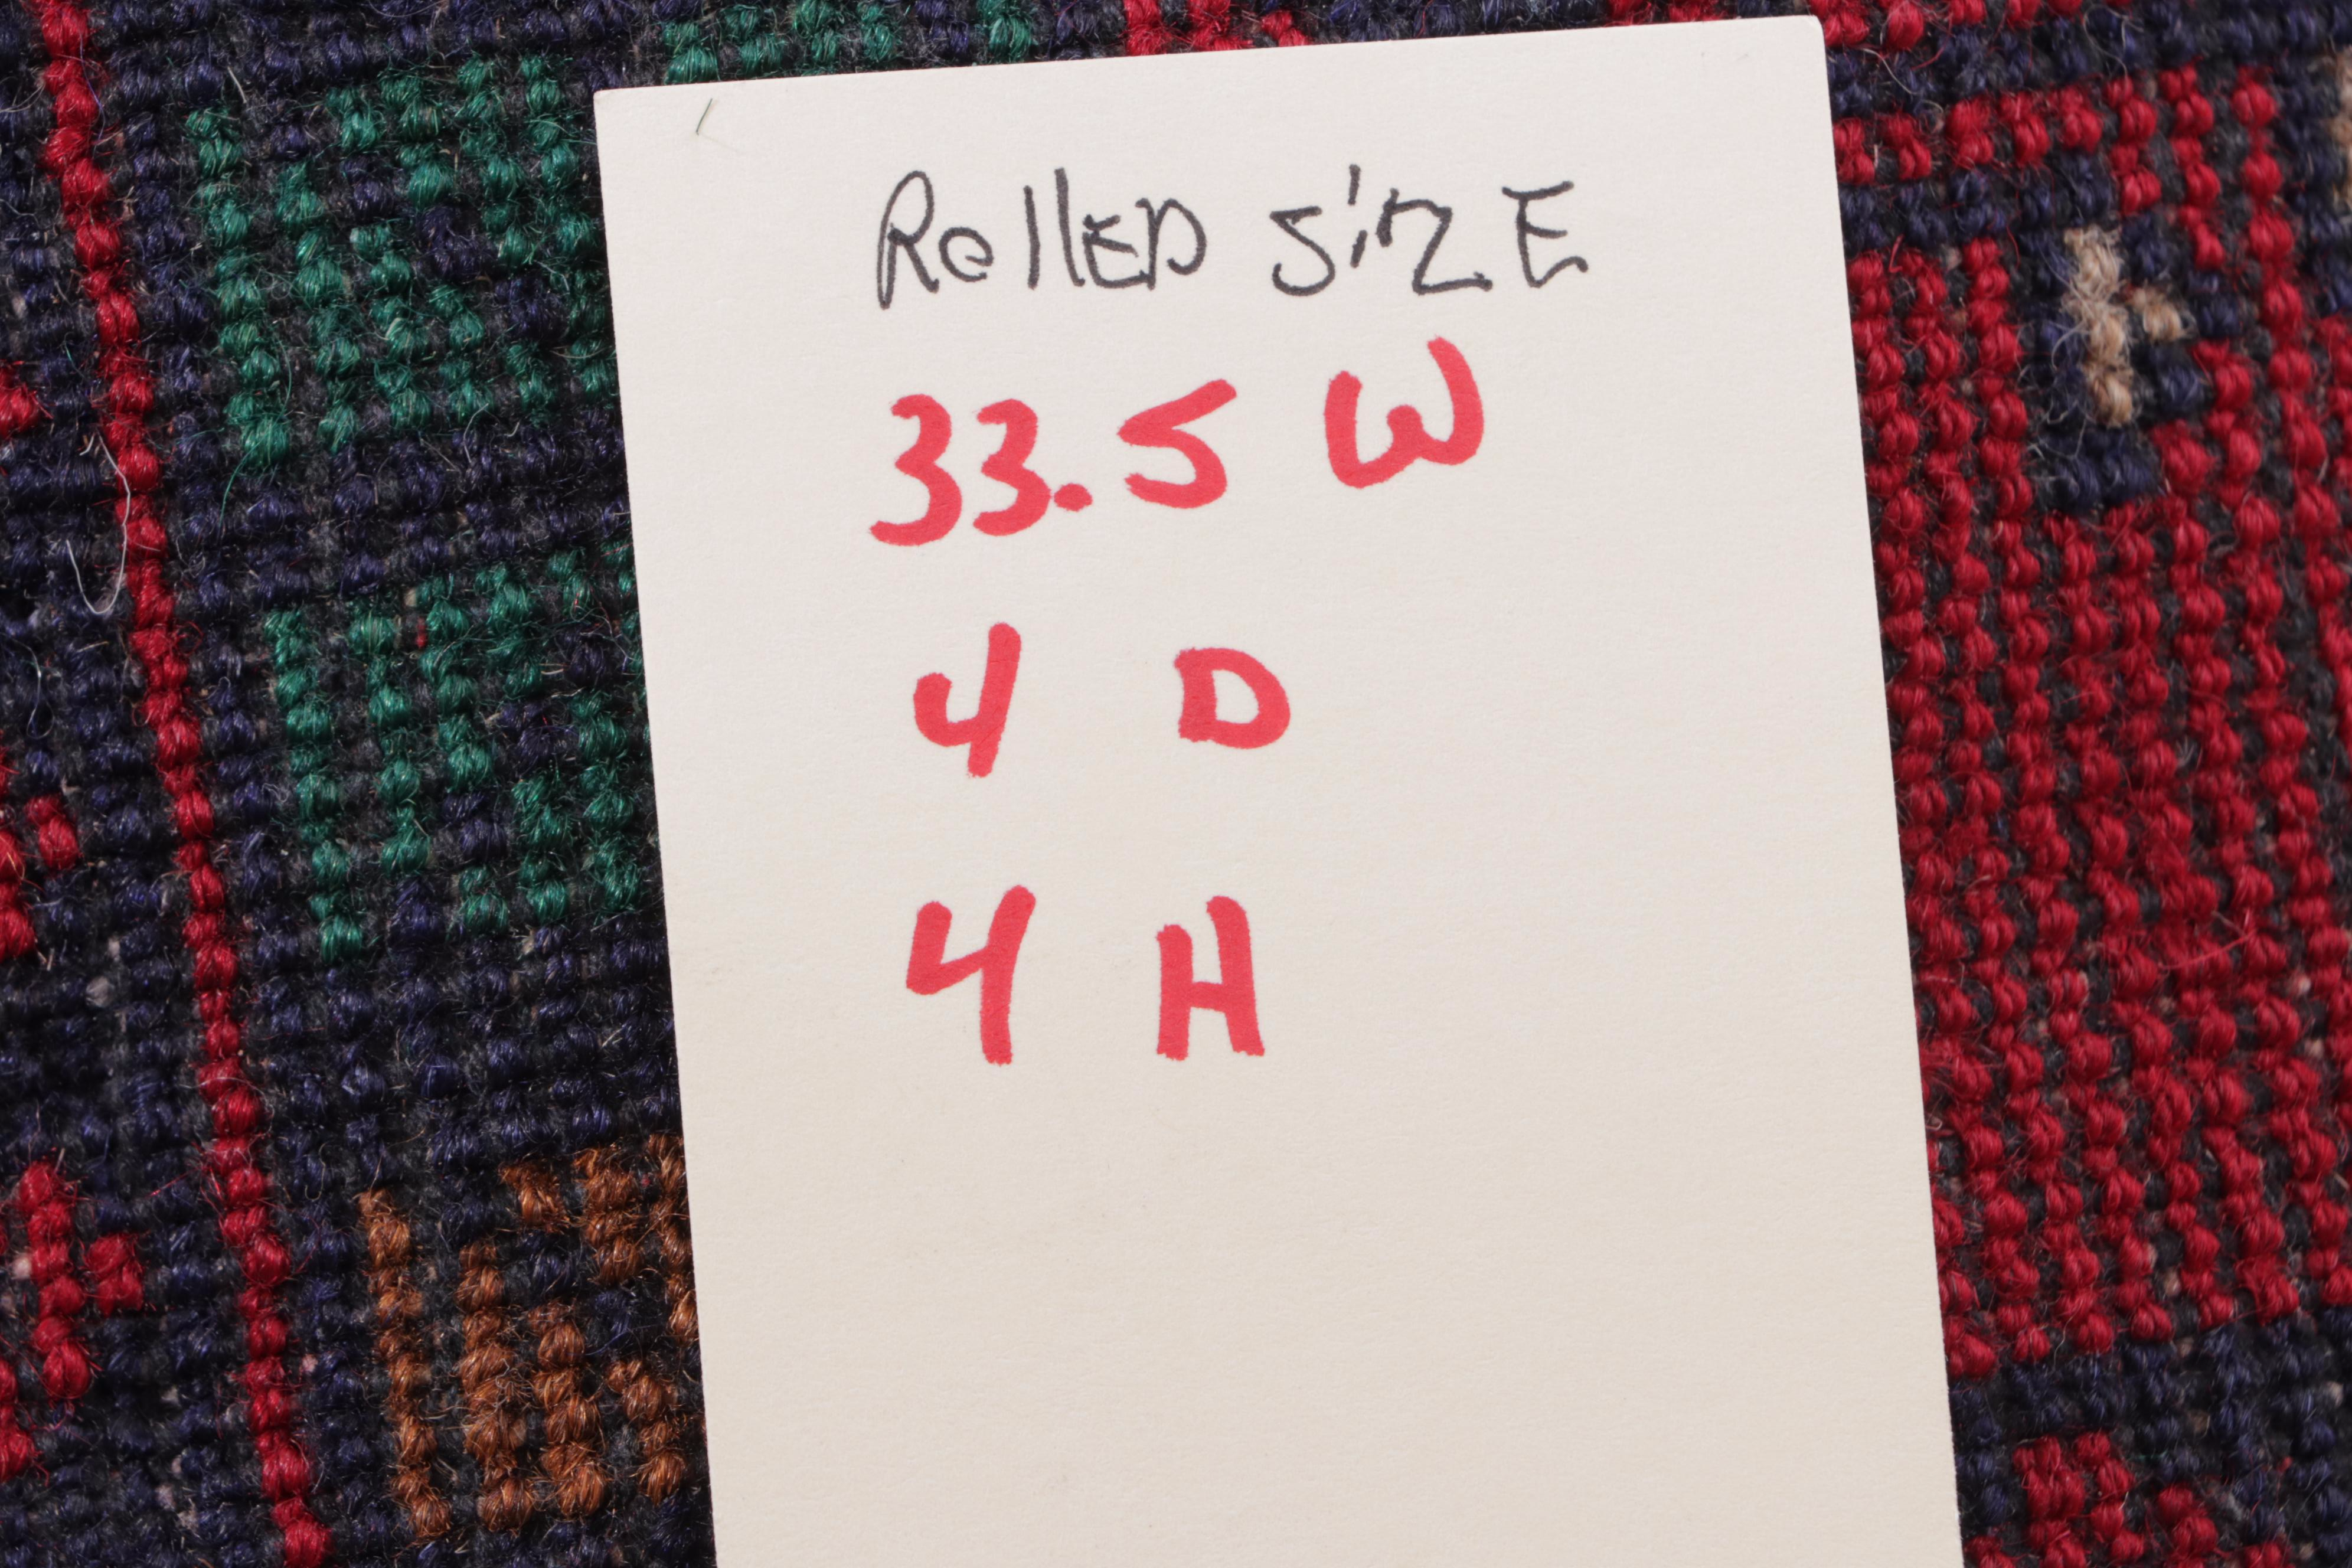 Rolled Size
33.5 W
4 D
4 H